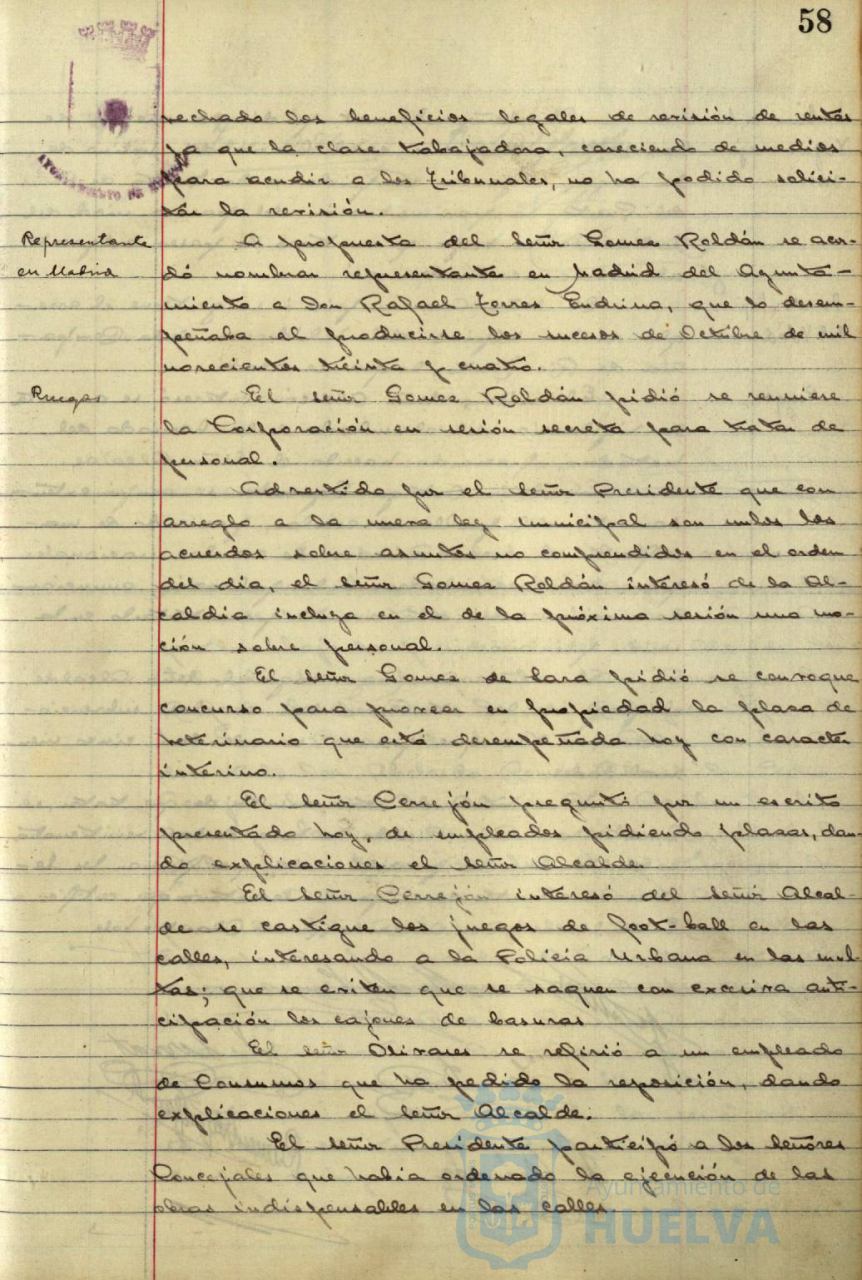 58
AYUNTAMIENTO DE HUELVA
vechado los beneficios legales de revisión de rentas
ya que la clase trabajadora, careciendo de medios
para acudir a los Tribunales, no ha podido solici-
tar la revisión.
Representante
en Madrid
A propuesta del señor Gomez Roldán se acor-
dó nombrar representante en Madrid del Ayunta-
miento a Don Rafael Torres Endrina, que lo desem-
peñaba al producirse los sucesos de Octubre de mil
novecientos treinta y cuatro.
Ruegos
El señor Gomez Roldán pidió se reuniere
la Corporación en sesión secreta para tratar de
personal.
Advertido por el señor Presidente que con
arreglo a la nueva ley municipal son nulos los
acuerdos sobre asuntos no comprendidos en el orden
del dia, el señor Gomez Roldán interesó de la Al-
caldia incluya en el de la próxima sesión una mo-
ción sobre personal.
El señor Gomez de Lara pidió se convoque
concurso para proveer en propiedad la plaza de
veterinario que está desempeñada hoy con caracter
interino.
El señor Cerrejón preguntó por un escrito
presentado hoy, de empleados pidiendo plazas, dan-
do explicaciones el señor Alcalde.
El señor Cerrejón interesó del señor Alcal-
de se castigue los juegos de foot-ball en las
calles, interesando a la Policia Urbana en las mul-
tas; que se eviten que se saquen con excesiva anti-
cipación los cajones de basuras
El señor Olivares se refirió a un empleado
de Consumos que ha pedido la reposición, dando
explicaciones el señor Alcalde.
El señor Presidente participó a los señores
Concejales que habia ordenado la ejecución de las
obras indispensables en las calles.
Ayuntamiento de
HUELVA